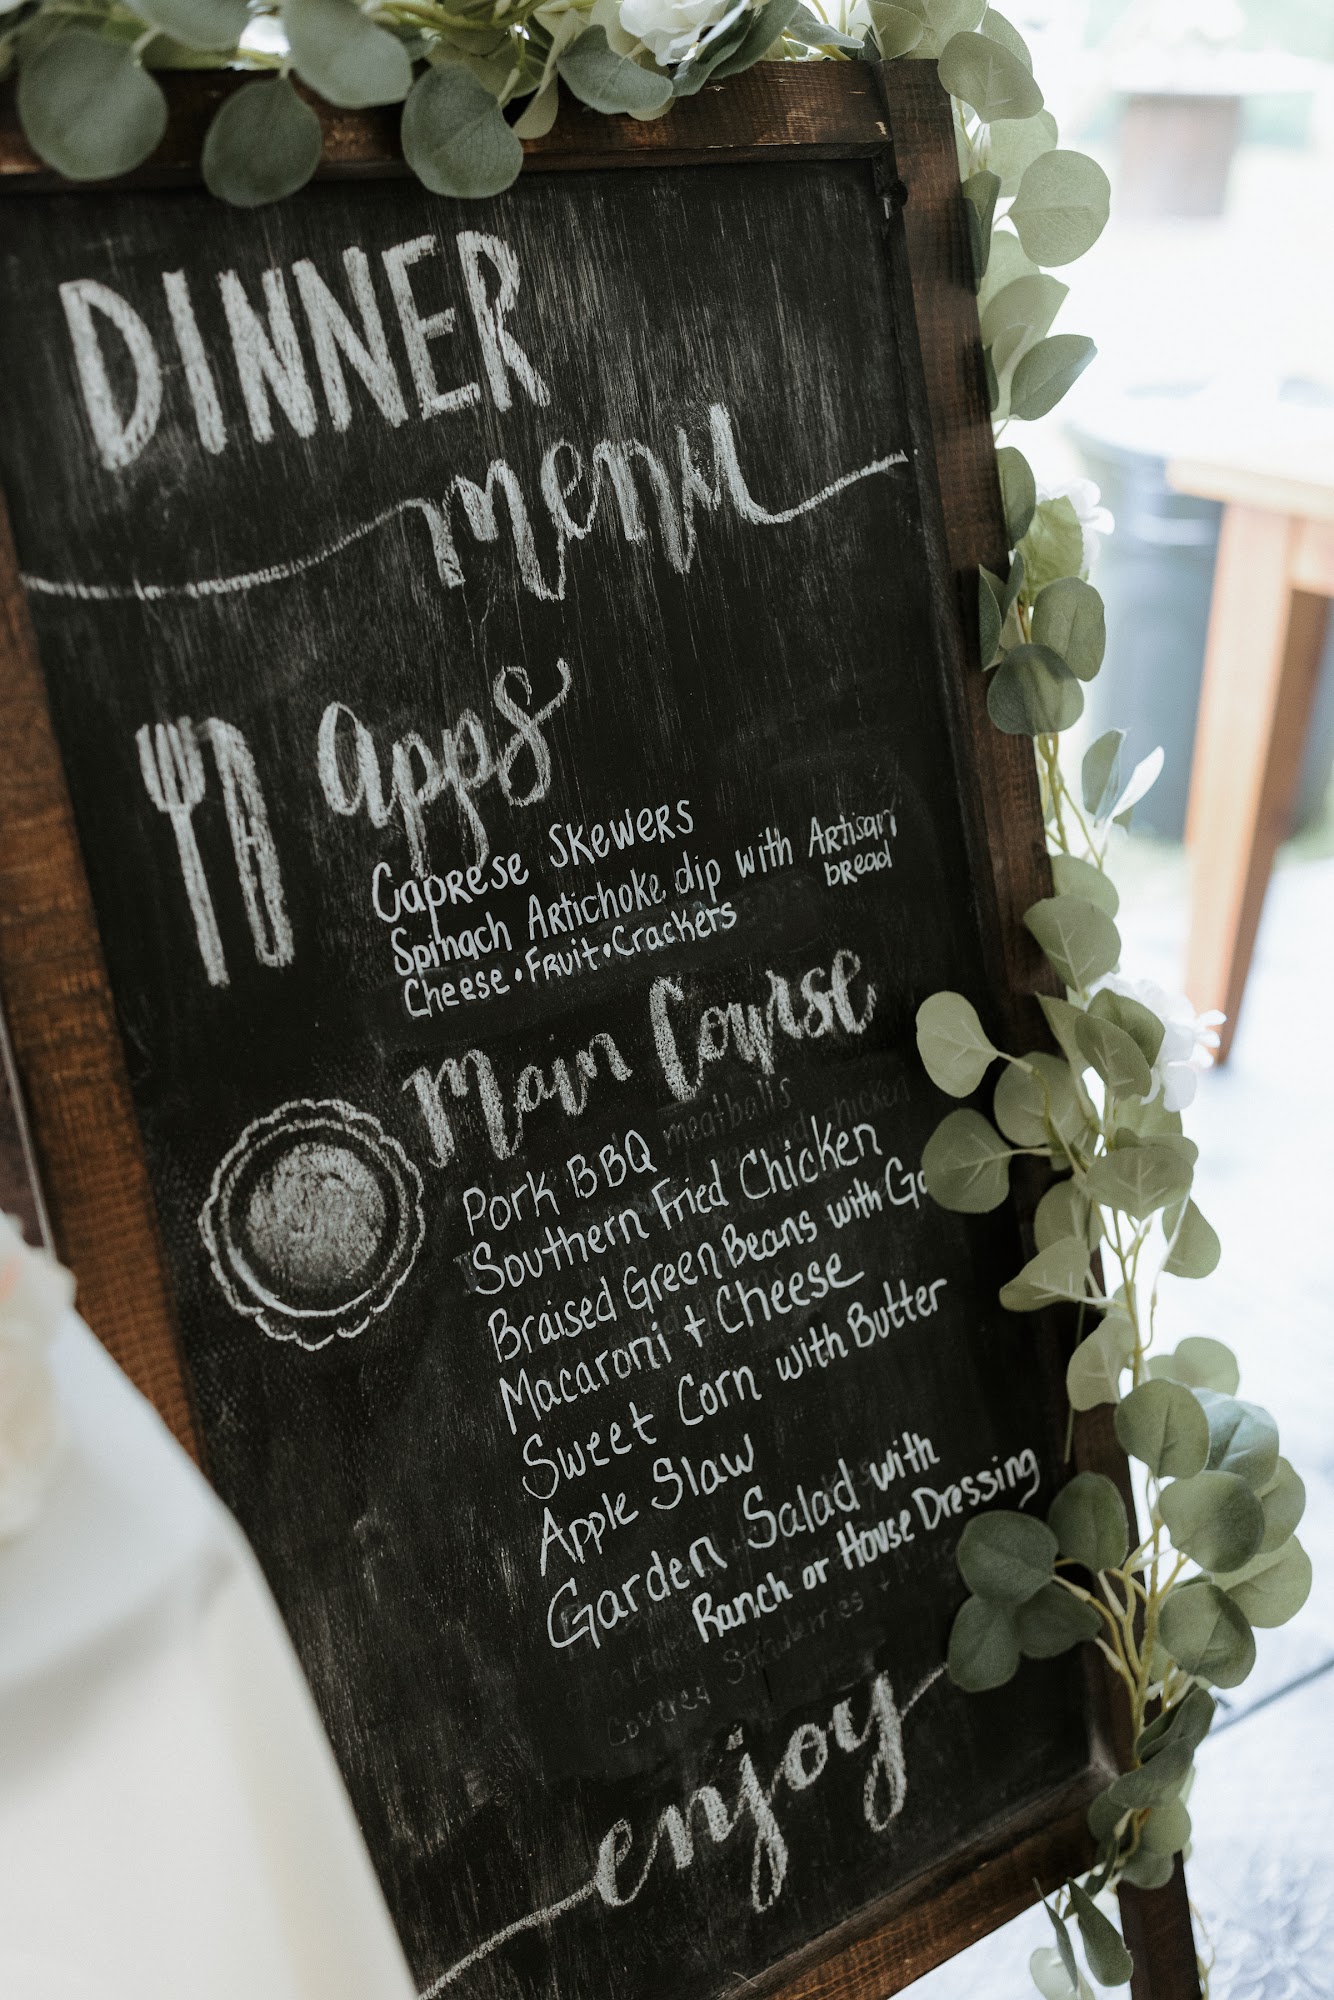 DINNER
menu
apps
Caprese Skewers
Spinach Artichoke dip with Artisan
bread
Cheese • Fruit • Crackers
Main Course
meatballs
Pork BBQ
chicken
Southern Fried Chicken
Braised Green Beans with
Macaroni + Cheese
Sweet Corn with Butter
Apple Slaw
Garden Salad with
Ranch or House Dressing
Covered Strawberries
enjoy